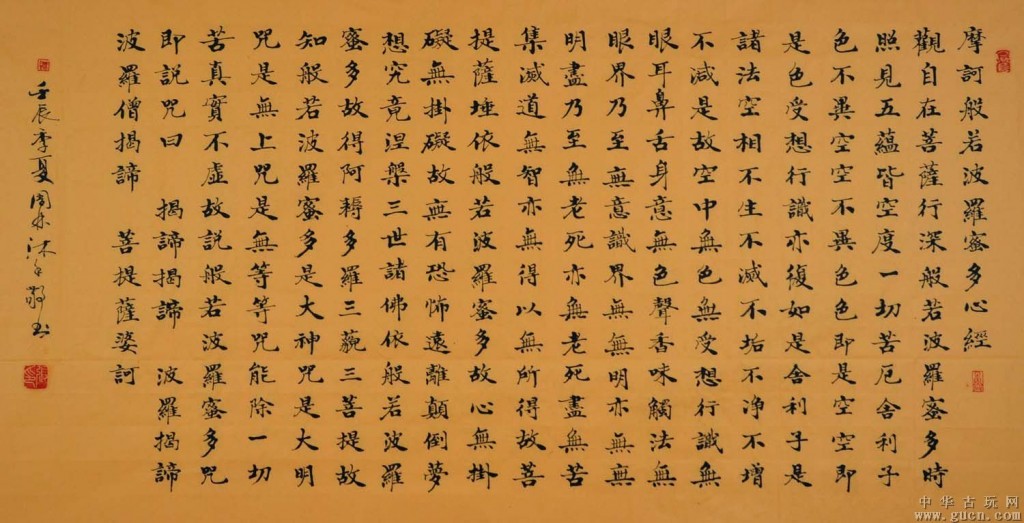 摩訶般若波羅蜜多心經
觀自在菩薩行深般若波羅蜜多時
照見五蘊皆空度一切苦厄舍利子
色不異空空不異色色即是空空即
是色受想行識亦復如是舍利子是
諸法空相不生不滅不垢不淨不增
不減是故空中無色無受想行識無
眼耳鼻舌身意無色聲香味觸法無
眼界乃至無意識界無無明亦無無
明盡乃至無老死亦無老死盡無苦
集滅道無智亦無得以無所得故菩
提薩埵依般若波羅蜜多故心無掛
礙無掛礙故無有恐怖遠離顛倒夢
想究竟涅槃三世諸佛依般若波羅
蜜多故得阿耨多羅三藐三菩提故
知般若波羅蜜多是大神咒是大明
咒是無上咒是無等等咒能除一切
苦真實不虛故說般若波羅蜜多咒
即說咒曰 揭諦揭諦 波羅揭諦
波羅僧揭諦 菩提薩婆訶
壬辰季夏周沐手敬书
中华古玩网
www.gucn.com